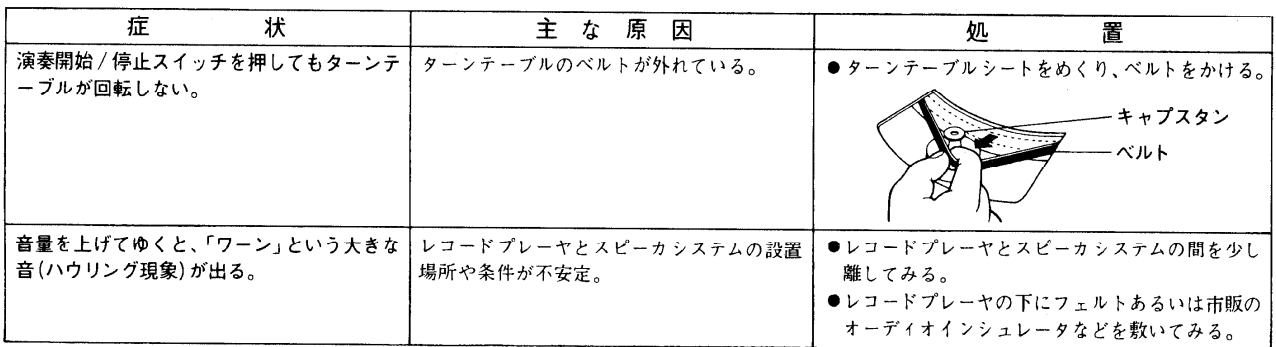 症状 主な原因 処置
演奏開始/停止スイッチを押してもターンテ
ーブルが回転しない。
ターンテーブルのベルトが外れている。
●ターンテーブルシートをめくり、ベルトをかける。
キャプスタン
ベルト
音量を上げてゆくと、「ワーン」という大きな
音(ハウリング現象)が出る。
レコードプレーヤとスピーカシステムの設置
場所や条件が不安定。
●レコードプレーヤとスピーカシステムの間を少し
離してみる。
●レコードプレーヤの下にフェルトあるいは市販の
オーディオインシュレータなどを敷いてみる。